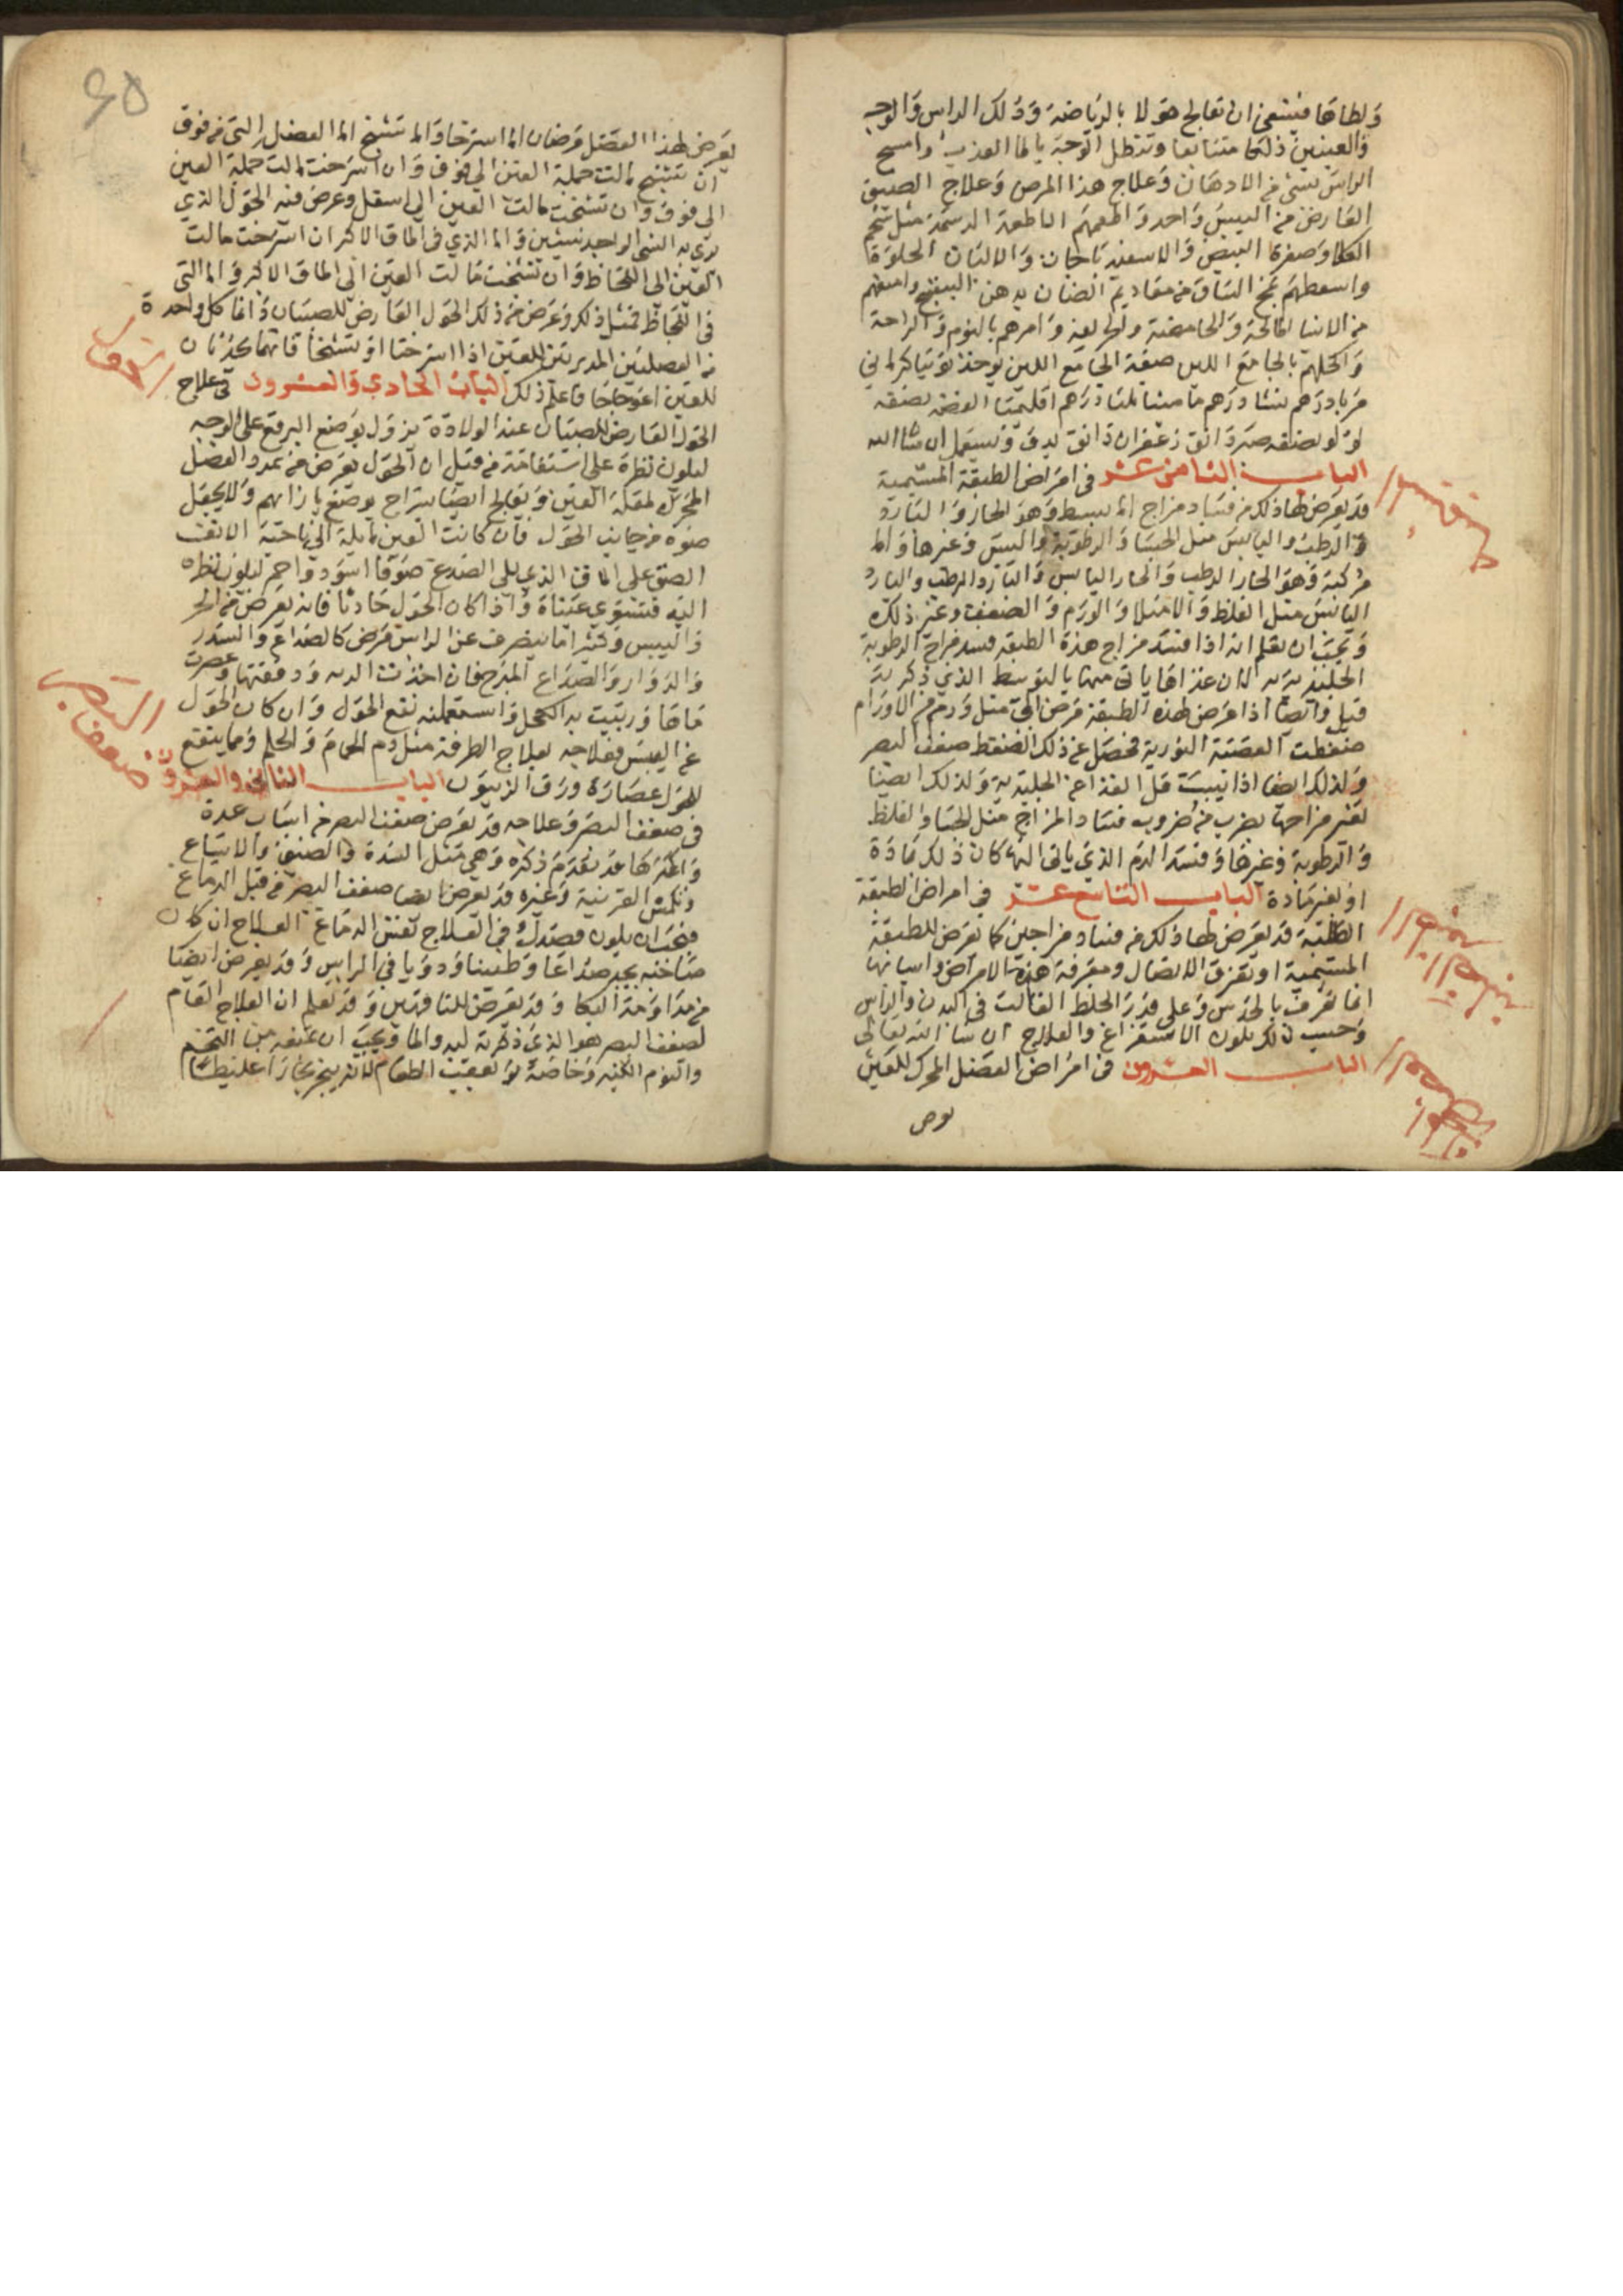 ولطافها فينبغي ان تعالج هولا بالرياضة ودلك الراس والوجه
والعينين دلكا متتابعا وتنطل الوجه بالما العذب وامسح
الراس بشي من الادهان وعلاج هذا المرض وعلاج الضيق
العارض من اليبس واحد واطعمهم الاطعمة الدسمة مثل شحم
الكلا وصفرة البيض والاسفيدباجات والالبان الحلوة
واسعطهم بمخ الساق من مقاديم الضان بدهن البنفسج وامنعهم
من الاشيا المالحة والحامضة والحريفة وامرهم بالنوم والراحة
واكحلهم بالجامع اللين صفة الجامع اللين يوخذ توتيا كرماني
مربا درهم نشا درهم ماميثا ثلثا درهم اقليميا الفضة نصفه
لولو نصفه صبر دانق زعفران دانق يدق ويستعمل ان شا الله
الباب الثامن عشر في امراض الطبقة المشيمية
قد يعرض لها ذلك من فساد مزاج اما بسيط وهو الحار والبارد
والرطب واليابس مثل الجسا والرطوبة واليبس وغيرها واما
مركبة وهو الحار الرطب والحار اليابس والبارد الرطب والبارد
اليابس مثل الغلظ والامتلا والورم والضعف وغير ذلك
ويجب ان يعلم انه اذا فسد مزاج هذه الطبقة فسد مزاج الرطوبة
الجليدية لان غذاها ياتي منها بالتوسط الذي ذكرته
قبل وايضا اذا عرض لهذه الطبقة مرض الي مثل ورم من الاورام
ضغطت العصبة النورية فحصل عن ذلك الضغط ضعف البصر
ولذلك ايضا اذا يبست قل الغذا عن الجليدية ولذلك ايضا
تغير مزاجها بضرب من ضروب فساد المزاج مثل الجسا والغلظ
والرطوبة وغيرها وفسد الدم الذي ياتي اليها كان ذلك بمادة
او بغير مادة الباب التاسع عشر في امراض الطبقة
الصلبة قد يعرض لها ذلك من فساد مزاجين كما تعرض للطبقة
المشيمية او تفرق الاتصال ومعرفة هذه الامراض واسبابها
انما تعرف بالحدس وعلى قدر الخلط الغالب في البدن والراس
وحسب ذلك يكون الاستفراغ والعلاج ان شا الله تعالى
الباب العشرون في امراض العضل المحرك للعين
يعرض لهذا العضل مرضان اما استرخا واما تشنج اما العضل التي من فوق
ان تشنج مالت جملة العين الي فوق وان استرخت مالت جملة العين
الى فوق وان تشنجت مالت العين الى اسفل وعرض منه الحول الذي
يري به الشي الواحد شيئين واما الذي في الماق الاكبر ان استرخت مالت
العين الى اللحاظ وان تشنجت مالت العين الى الماق الاكبر واما التي
في اللحاظ فمثل ذلك وعرض من ذلك الحول العارض للصبيان واما كل واحدة
من العضلتين المديرتين للعين اذا استرختا او تشنجتا فانهما يحدثان
للعين اعوجاجا فاعلم ذلك الباب الحادي والعشرون في علاج
الحول
الحول العارض للصبيان عند الولادة يزول بوضع البرقع على الوجه
ليكون نظره على استقامة من قبل ان الحول يعرض من تمدد العضل
المحرك لمقلة العين ويعالج ايضا بسراج يوضع بازايهم ولا يجعل
ضوه من جانب الحول فان كانت العين مايلة الي ناحية الانف
الصق على الماق الذي يلي الصدغ صوفا اسود واحمر ليكون نظره
اليه فتستوي عيناه واذا كان الحول حادثا فانه يعرض من الحر
واليبس وكثيرا ما ينصرف عن الراس مرض كالصداع والسدر
والدوار والصداع المبرح فان اخذت الدبه ودققتها وعصرت
ماها وربيت به الكحل واستعملته نفع الحول وان كان الحول
عن اليبس فعلاجه بعلاج الطرفة مثل دم الحمام والحلم ومما ينفع
للحول عصارة ورق الزيتون الباب الثاني والعشرون
ضعف البصر
في ضعف البصر وعلاجه قد يعرض ضعف البصر من اسباب عدة
واكثرها قد تقدم ذكره وهي مثل السدة والضيق والاتساع
وتكمش القرنية وغيره وقد يعرض ايضا ضعف البصر من قبل الدماغ
فيجب ان يكون قصدك في العلاج تفتش الدماغ العلاج ان كان
صاحبه يجد صداعا وطنينا ودويا في الراس وقد يعرض ايضا
من مداومة البكا وقد يعرض للناقهين وقد تعلم ان العلاج العام
لضعف البصر هو الذي ذكرته لبدو الما ويجب ان تمنعه من التخم
والنوم الكثير وخاصة بعقب الطعام لانه يبخر بخارا غليظا